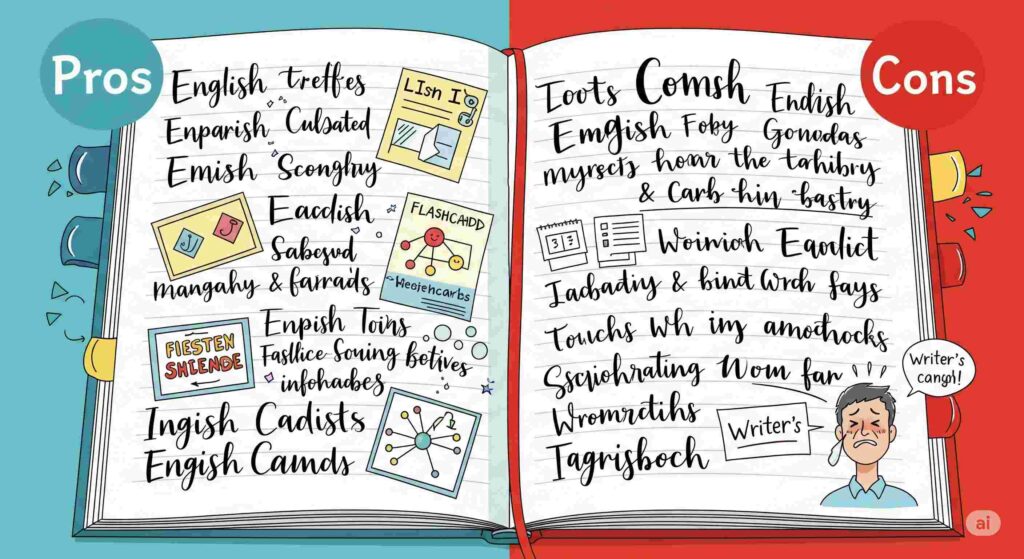 Pros
English treffes
Enparish Culsated
Emish Sconghry
LIsn I
Eacdish
Sabesvd
mangahy & farraids
FLASHCAHDD
Enpish Toins
Fasllice Souing Botives
infohades
FIESTEN
SHIENDE
Ingish Cadists
Engish Camds
Cons
Toots Comsh Endish
Emgish Foby Gonodas
myrects hoar the tahibry
& Carb hin bastry
Woinioh Eaodict
Iadbadiy & bind Wrch fays
Touchs Wh iny amothocks
Sscriohrating Wom fan
Wromrctihs
Tagrisboch
Writer's
Writer's
cangh!
ai